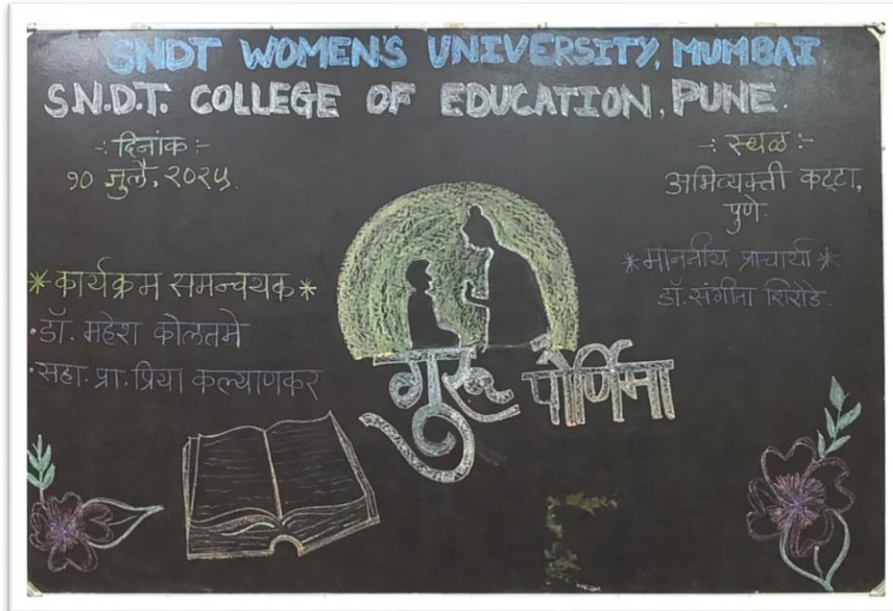 SNDT WOMEN'S UNIVERSITY, MUMBAI.
S.N.D.T. COLLEGE OF EDUCATION, PUNE.
-: दिनांक :-
१० जुलै, २०२५.
-: स्थळ :-
अभिव्यक्ती कट्टा,
पुणे.
*माननीय प्राचार्या*
डॉ. संगीता शिरोडे.
*कार्यक्रम समन्वयक*
·डॉ. महेश कोलतमे
·सहा. प्रा. प्रिया कल्याणकर
गुरू पौर्णिमा